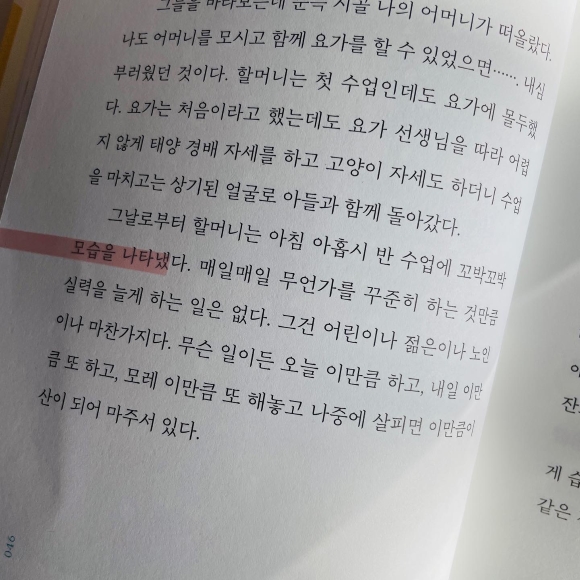 그들을 바라보는데 문득 시골 나의 어머니가 떠올랐다.
나도 어머니를 모시고 함께 요가를 할 수 있었으면……. 내심
부러웠던 것이다. 할머니는 첫 수업인데도 요가에 몰두했
다. 요가는 처음이라고 했는데도 요가 선생님을 따라 어렵
지 않게 태양 경배 자세를 하고 고양이 자세도 하더니 수업
을 마치고는 상기된 얼굴로 아들과 함께 돌아갔다.
그날로부터 할머니는 아침 아홉시 반 수업에 꼬박꼬박
모습을 나타냈다. 매일매일 무언가를 꾸준히 하는 것만큼
실력을 늘게 하는 일은 없다. 그건 어린이나 젊은이나 노인
이나 마찬가지다. 무슨 일이든 오늘 이만큼 하고, 내일 이만
큼 또 하고, 모레 이만큼 또 해놓고 나중에 살피면 이만큼이
산이 되어 마주서 있다.
046
게 습
같은